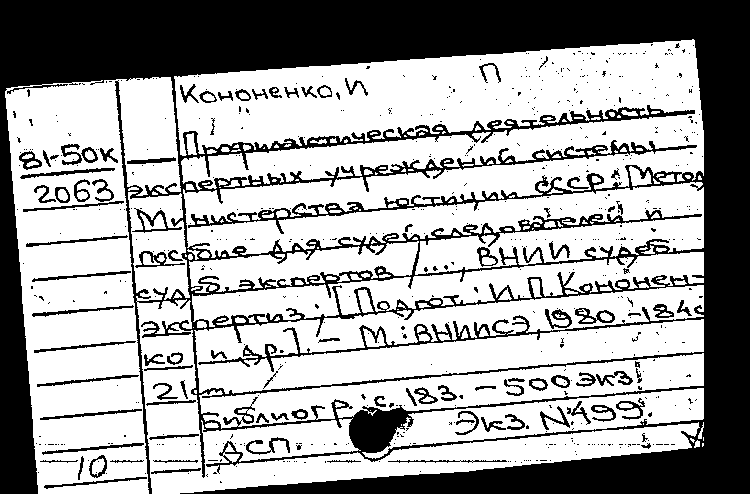 Кононенко, И П
81-50к
2063
Профилактическая деятельность
экспертных учреждений системы
Министерства юстиции СССР: Метод
пособие для судей, следователей и
судеб. экспертов /..., ВНИИ судеб.
экспертиз; [Подгот.: И.П. Кононен-
ко и др.]. – М.: ВНИИСЭ, 1980. - 184с
21см.
Библиогр.: с. 183. – 500 экз.
ДСП. Экз. №499.
10